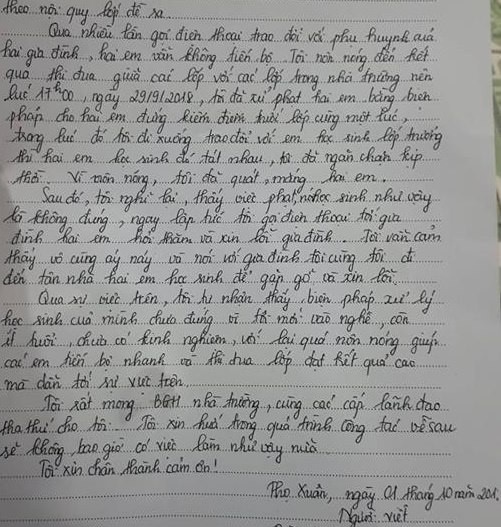 theo nội quy lớp đề ra.
Qua nhiều lần gọi điện thoại trao đổi với phụ huynh của
hai gia đình, hai em vẫn không tiến bộ. Tôi nôn nóng đến kết
quả thi đua giữa các lớp với các lớp trong nhà trường nên
lúc 17h00, ngày 29/9/2018, tôi đã xử phạt hai em bằng biện
pháp cho hai em đứng kiểm điểm trước lớp cùng một lúc,
trong lúc đó tôi đi xuống trao đổi với em học sinh lớp trưởng
thì hai em học sinh đó tát nhau, tôi đã ngăn chặn kịp
thời. Vì nôn nóng, tôi đã quát, mắng hai em.
Sau đó, tôi nghĩ lại, thấy việc phạt, nó học sinh như vậy
là không đúng, ngay lập tức tôi gọi điện thoại tới gia
đình hai em hỏi thăm và xin lỗi gia đình. Tôi vẫn cảm
thấy vô cùng áy náy và nói với gia đình tôi cùng tôi đi
đến tận nhà hai em học sinh để gặp gỡ và xin lỗi.
Qua sự việc trên, tôi tự nhận thấy biện pháp xử lý
học sinh của mình chưa đúng vì tôi mới vào nghề, còn
ít tuổi, chưa có kinh nghiệm, với lại quá nôn nóng giúp
các em tiến bộ nhanh và thi đua lớp đạt kết quả cao
mà dẫn tới sự việc trên.
Tôi rất mong BGH nhà trường, cùng các cấp lãnh đạo
tha thứ cho tôi. Tôi xin hứa trong quá trình công tác về sau
sẽ không bao giờ có việc làm như vậy nữa.
Tôi xin chân thành cảm ơn!
Thọ Xuân, ngày 01 tháng 10 năm 201
Người viết